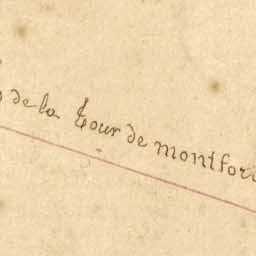 de la tour de montfor